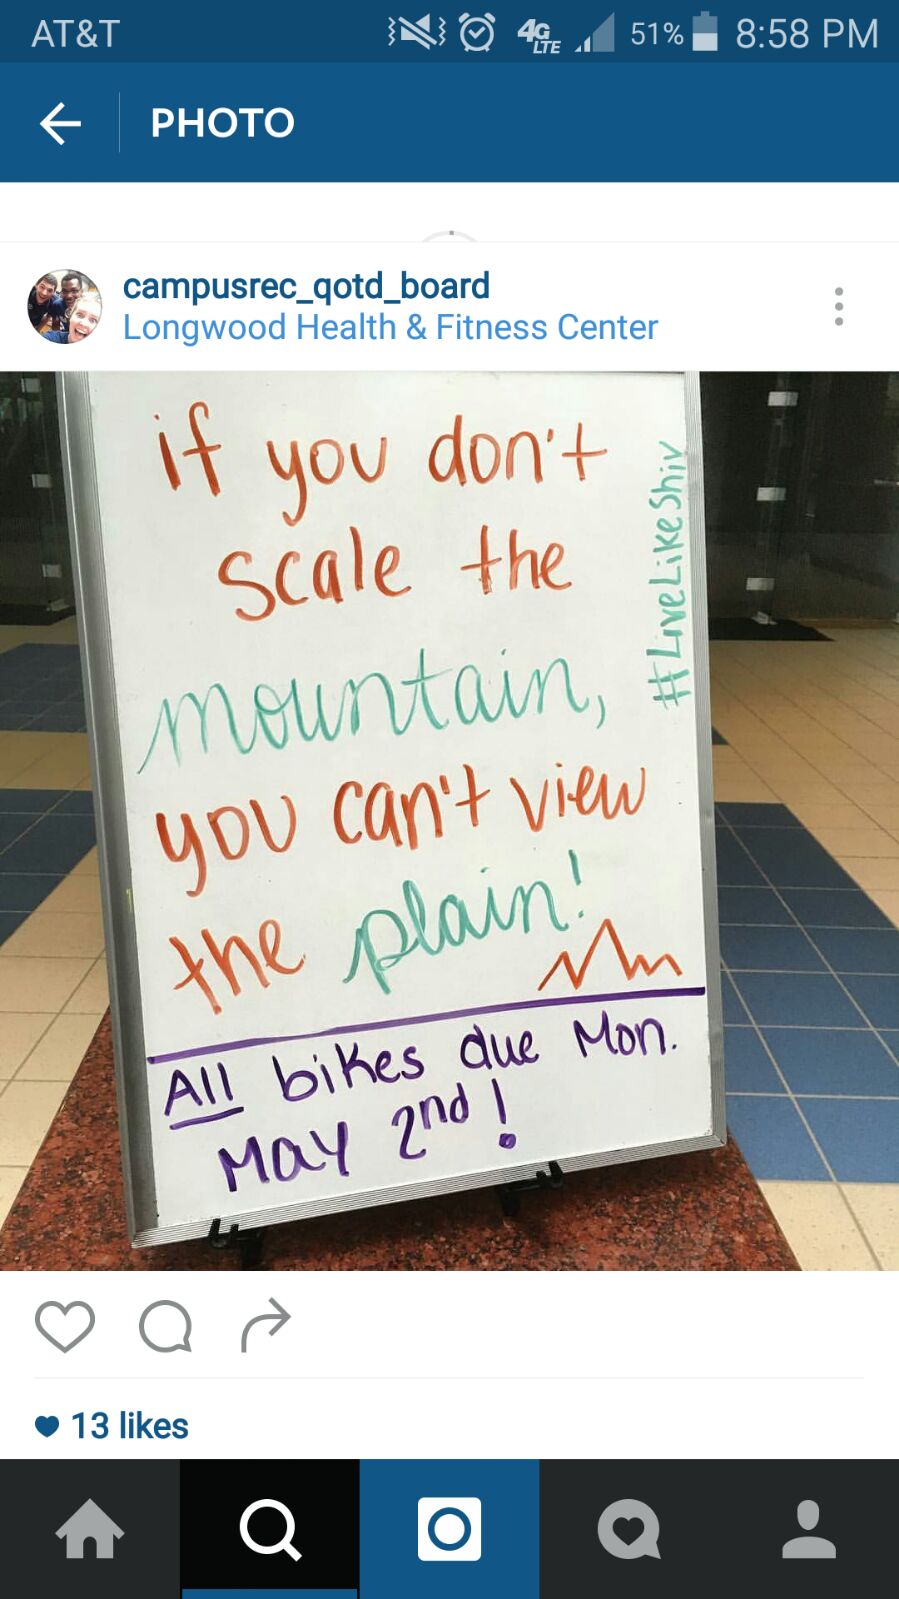 AT&T 4G LTE 51% 8:58 PM
PHOTO
campusrec_qotd_board
Longwood Health & Fitness Center
if you don't
scale the
mountain,
you can't view
the plain!
#LiveLikeShiv
All bikes due Mon.
May 2nd!
13 likes